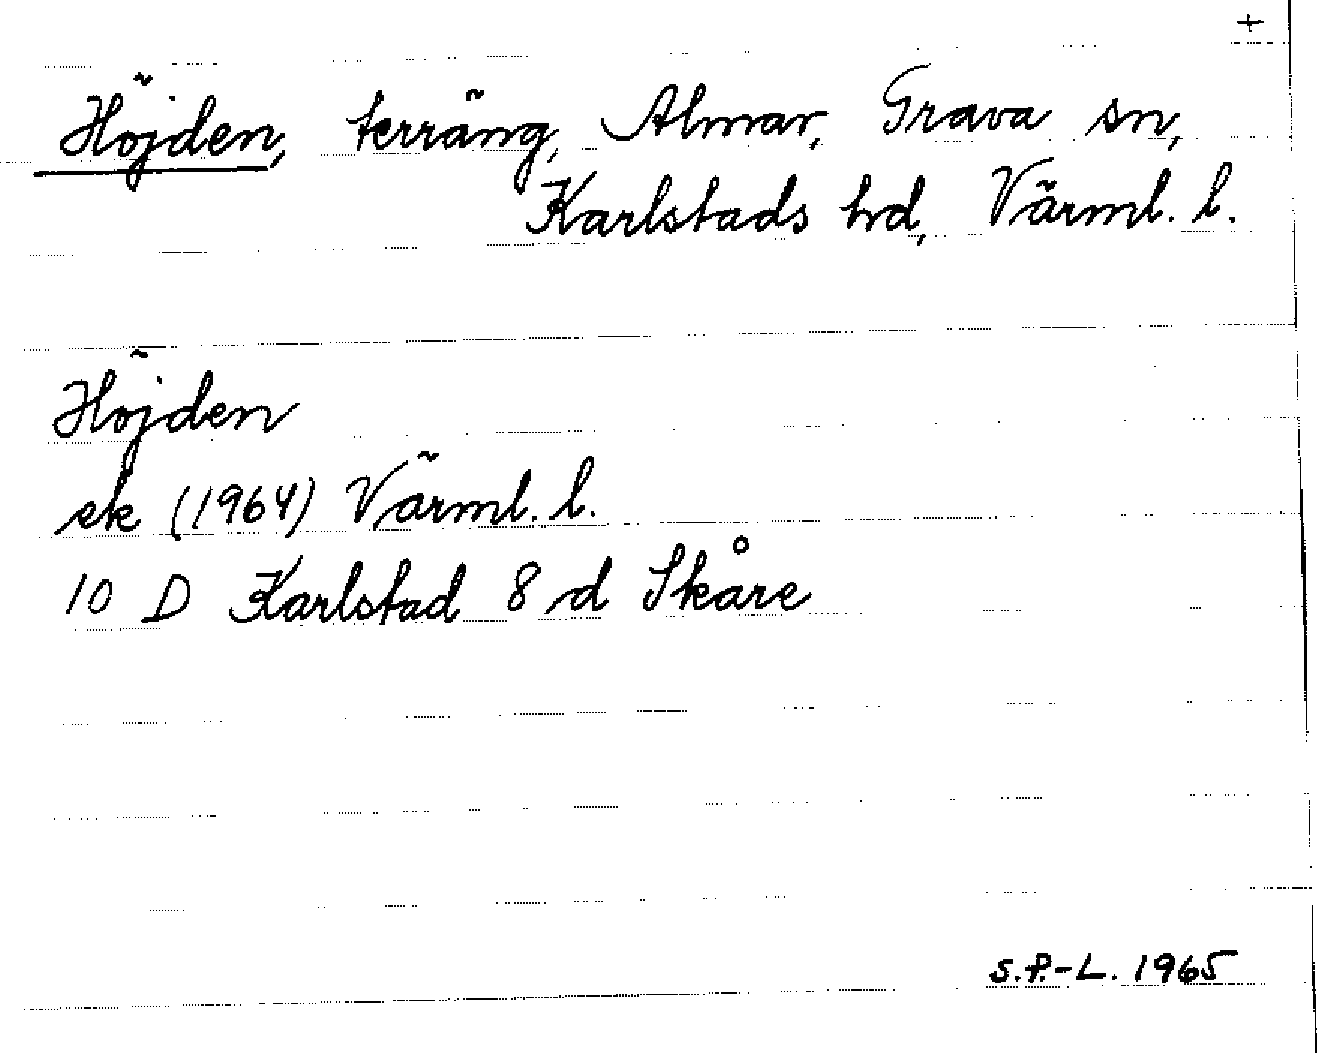 +
Höjden, terräng, Almar, Grava sn,
Karlstads hd, Värml. l.
Höjden
ek (1964) Värml. l.
10 D Karlstad 8 d Skåre
S.P.-L. 1965